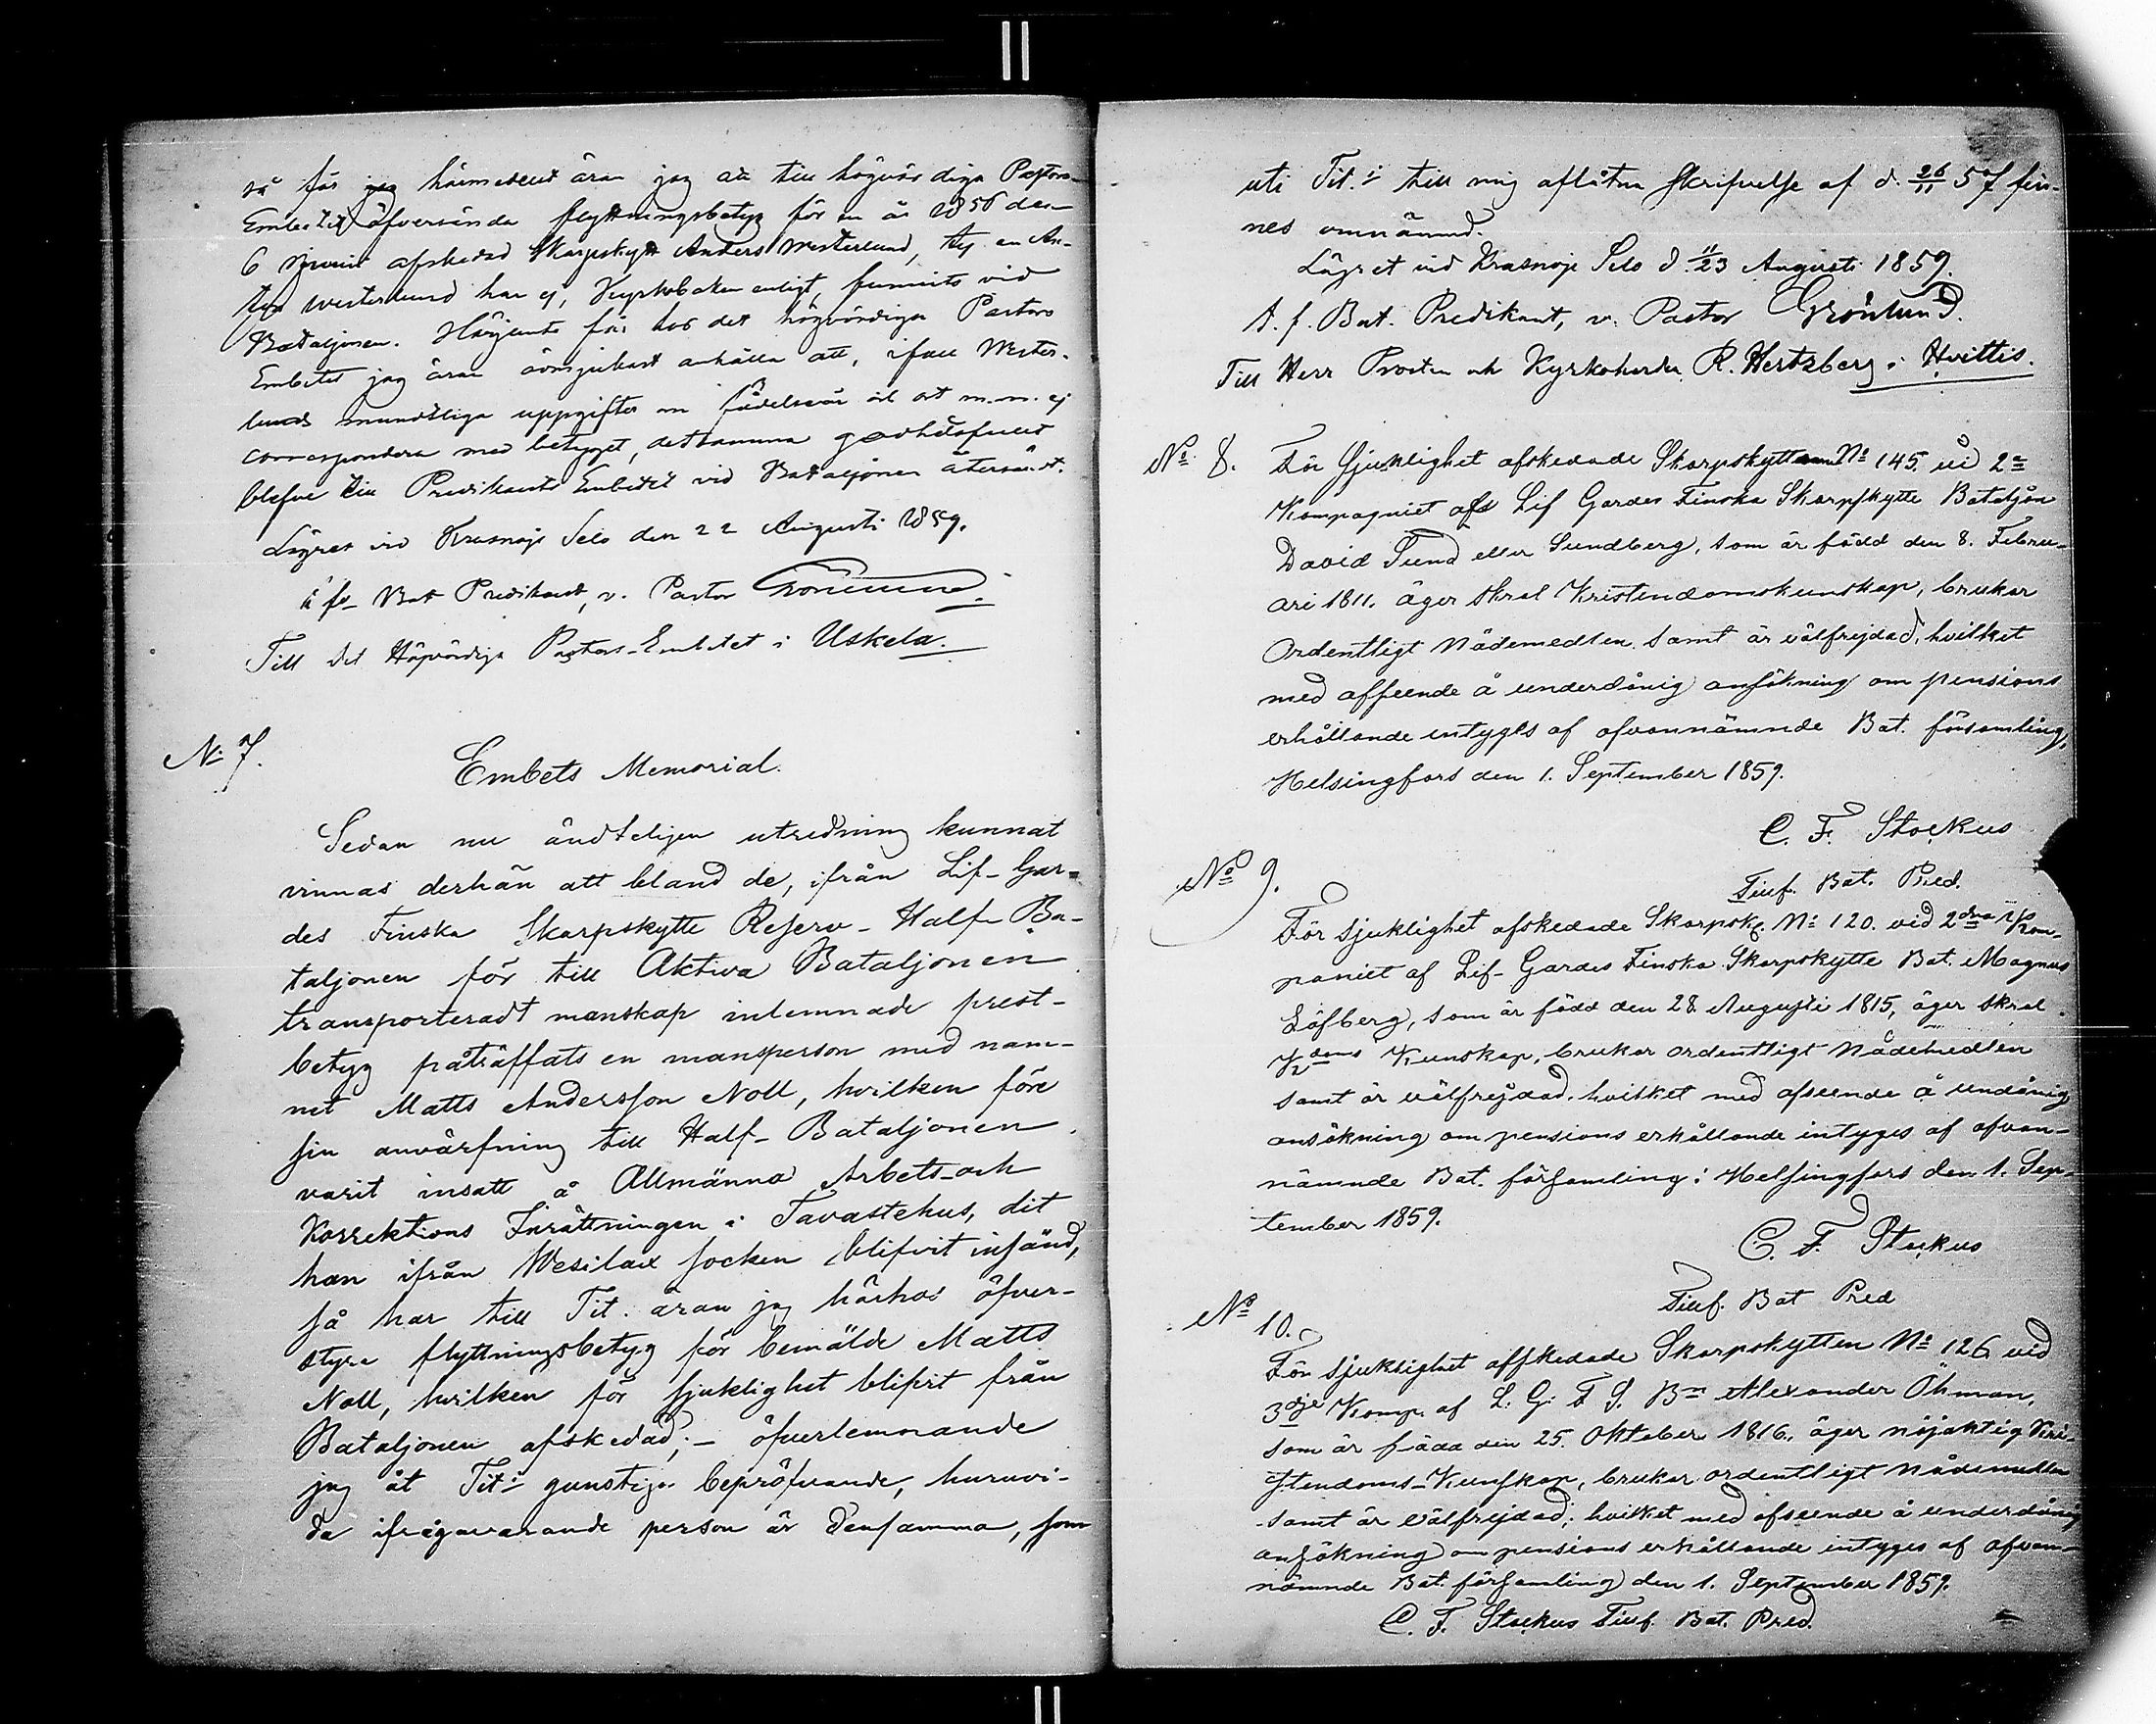 så får jag härmedelst äran jag att till högvördiga Pastors-
Embetet öfversända flyttningsbetyg för en år 1856 den
6 afskedad Skarpskytt Anders Westerlund, ty en An-
ders Westerlund har ej, Kyrkoboken enligt, funnits vid
Bataljonen. Härjemte får hos det högvördiga Pastors
Embetet jag äran ödmjukast anhålla att, ifall Wester-
lunds muntliga uppgifter om födelseår och ort m.m. ej
correspondera med betyget, detsamma godhetsfullt
blefve till Predikants Embetet vid Bataljonen återsändt.
Lägret vid Krasnoje Selo den 22 Augusti 1859.
t. f. Bat Predikant, v. Pastor Grönlund.
Till det Högvördiga Pastors-Embetet i Uskela.
No 7.
Embets Memorial.
Sedan nu ändteligen utredning kunnat
vinnas derhän att bland de, ifrån Lif-Gar-
des Finska Skarpskytte Reserv-Half-Ba-
taljonen för till Aktiva Bataljonen
transporteradt manskap inlemnade prest-
betyg påträffats en mansperson med nam-
net Matts Andersson Noll, hvilken före
sin anvärfning till Half-Bataljonen
varit insatt å Allmänna Arbets- och
Korrektions Inrättningen i Tavastehus, dit
han ifrån Wesilax socken blifvit insänd,
så har till Tit. äran jag härhos öfver-
styra flyttningsbetyg för bemälde Matts
Noll, hvilken för sjuklighet blifvit från
Bataljonen afskedad; - öfverlemnande
jag åt Tit:s gunstiga bepröfvande, huruvi-
da ifrågavarande person är densamma, som
uti Tit:s till mig aflåtna skrifvelse af d. 26/11 57 fin-
nes omnämnd.
Lägret vid Krasnoje Selo d. 11/23 Augusti 1859.
t. f. Bat. Predikant, v. Pastor Grönlund.
Till Herr Prosten och Kyrkoherden R. Hertzberg i Hvittis.
No 8. För sjuklighet afskedade Skarpskytten No 145 vid 2a
Kompagniet af Lif Gardes Finska Skarpskytte Bataljon
David Sund eller Sundberg, som är född den 8. Febru-
ari 1811. äger skral Kristendomskunskap, brukar
Ordentligt Nådemedlen samt är välfrejdad, hvilket
med afseende å underdånig ansökning om pensions
erhållande intygas af ofvannämnde Bat. församling,
Helsingfors den 1. September 1859.
C. F. Stockus
Tief. Bat. Pred.
No 9.
För sjuklighet afskedade Skarpsk. No 120. vid 2dra Kom-
paniet af Lif-Gardes Finska Skarpskytte Bat. Magnus
Löfberg, som är född den 28 Augusti 1815, äger skral
Xdoms Kunskap, brukar ordentligt Nådemedlen
samt är välfrejdad. hvilket med afseende å undånig
ansökning om pensions erhållande intyges af ofvan-
nämnde Bat. församling: Helsingfors den 1. Sep-
tember 1859.
C. F. Stockus
Tief. Bat Pred
No 10.
För sjuklighet afskedade Skarpskytten No 126 vid
3dje Komp. af L. G: F S. Bn Alexander Öhman,
som är född den 25. Oktober 1816. äger nöjaktig Kri-
stendoms-Kunskap, brukar ordentligt nådemedlen
samt är välfrejdad; hvilket med afseende å underdånig
ansökning om pensions erhållande intyges af ofvan-
nämnde Bat. församling den 1. September 1859.
C. F. Stockus Tief. Bat. Pred.